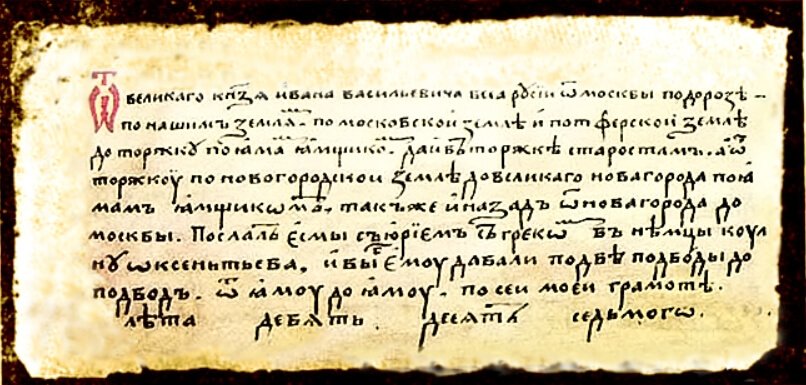 Ѿ великаго кнѕѧ и҆вана васильевича всиа русии ѿ москвы подорозѣ
по нашимъ землѧⷨ. по московскои землѣ и҆ по тферской землѣ
до торжку по ꙗ҆маⷨ ꙗ҆мщикоⷨ. да и҆ въ торжкѣ старостамъ. а ѿ
торжкоу по новогородскои землѣ до великаго новагорода по ꙗ҆
мамъ ꙗ҆мщикѡмъ. такъ же и҆ назадъ ѿ новагорода до
москвы. Послалъ е҆смы съ ю҆рїемъ съ грекоⷨ въ нѣмцы коул
ку ѡксеньтьева, и҆ вы е҆моу давали по двѣ подводы до
подводъ. ѿ ꙗ҆моу до ꙗ҆моу. по сеи моеи грамотѣ.
лѣта девѧть десѧтъ седьмогѡ.